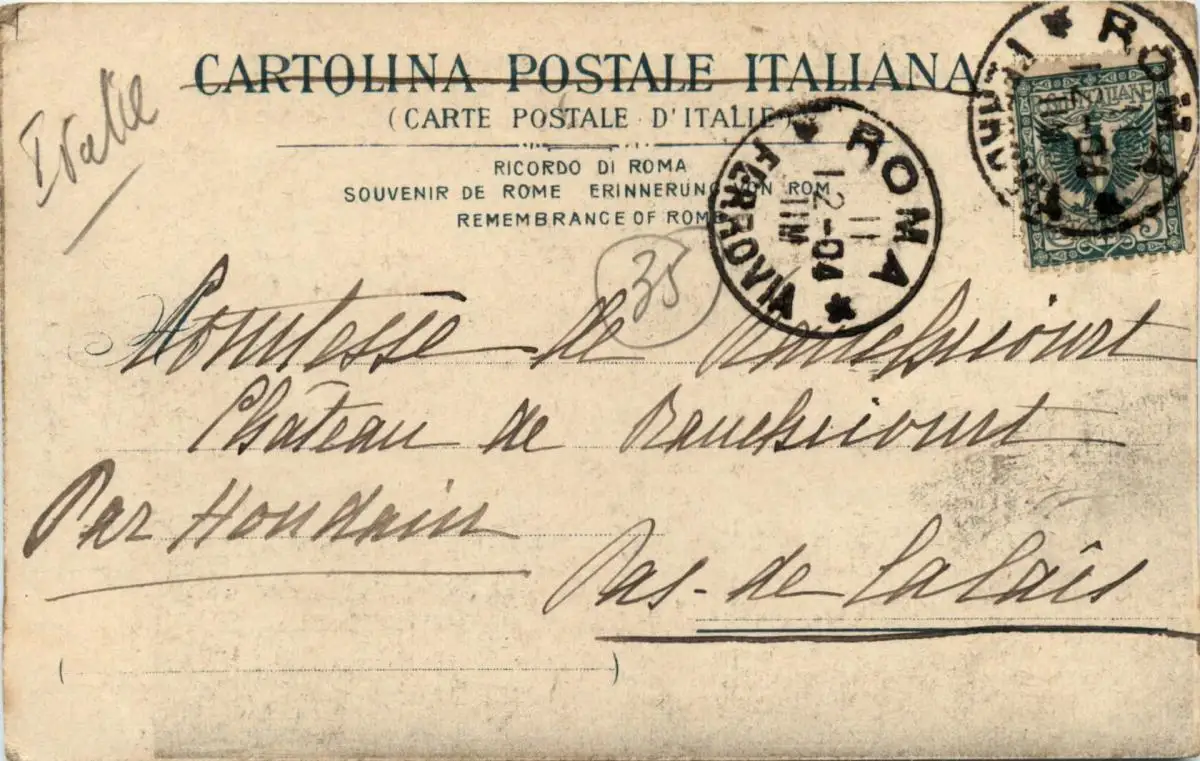 CARTOLINA POSTALE ITALIANA
(CARTE POSTALE D'ITALIE)
RICORDO DI ROMA
SOUVENIR DE ROME ERINNERUNG VON ROM
REMEMBRANCE OF ROME
Italie
ROMA
FERROVIA
11
12-04
11M
ROMA
FERROVIA
35
Comtesse de Ranchicourt
Château de Ranchicourt
Par Houdain
Pas-de Calais
( )